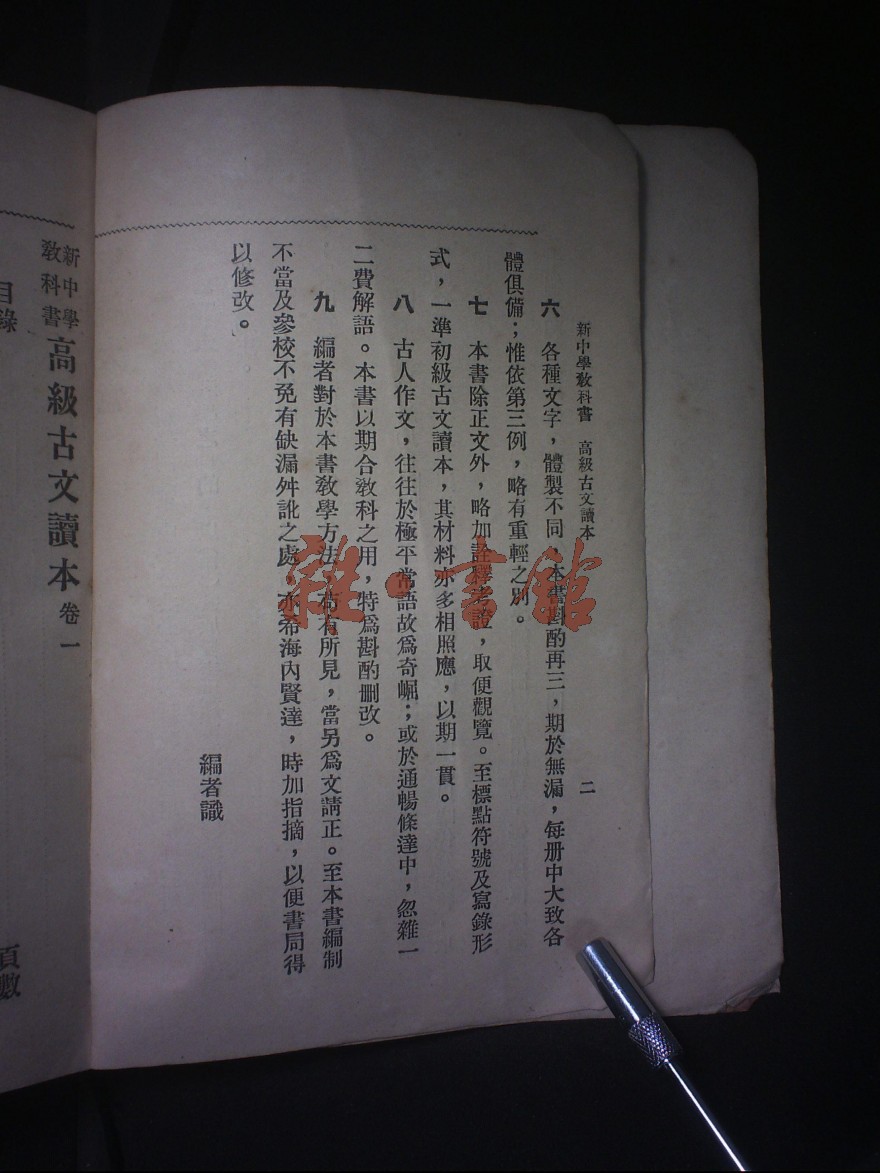 新中學教科書 高級古文讀本
二
六 各種文字，體製不同，本書斟酌再三，期於無漏，每册中大致各
體俱備；惟依第三例，略有重輕之別。
七 本書除正文外，略加詮釋考證，取便觀覽。至標點符號及寫錄形
式，一準初級古文讀本，其材料亦多相照應，以期一貫。
八 古人作文，往往於極平常語故爲奇崛；或於通暢條達中，忽雜一
二費解語。本書以期合敎科之用，特爲斟酌删改。
九 編者對於本書敎學方法，苟有所見，當另爲文請正。至本書編制
不當及參校不免有缺漏舛訛之處，亦希海內賢達，時加指摘，以便書局得
以修改。
編者識
新中學敎科書高級古文讀本卷一
目錄
頁數
雜·書館